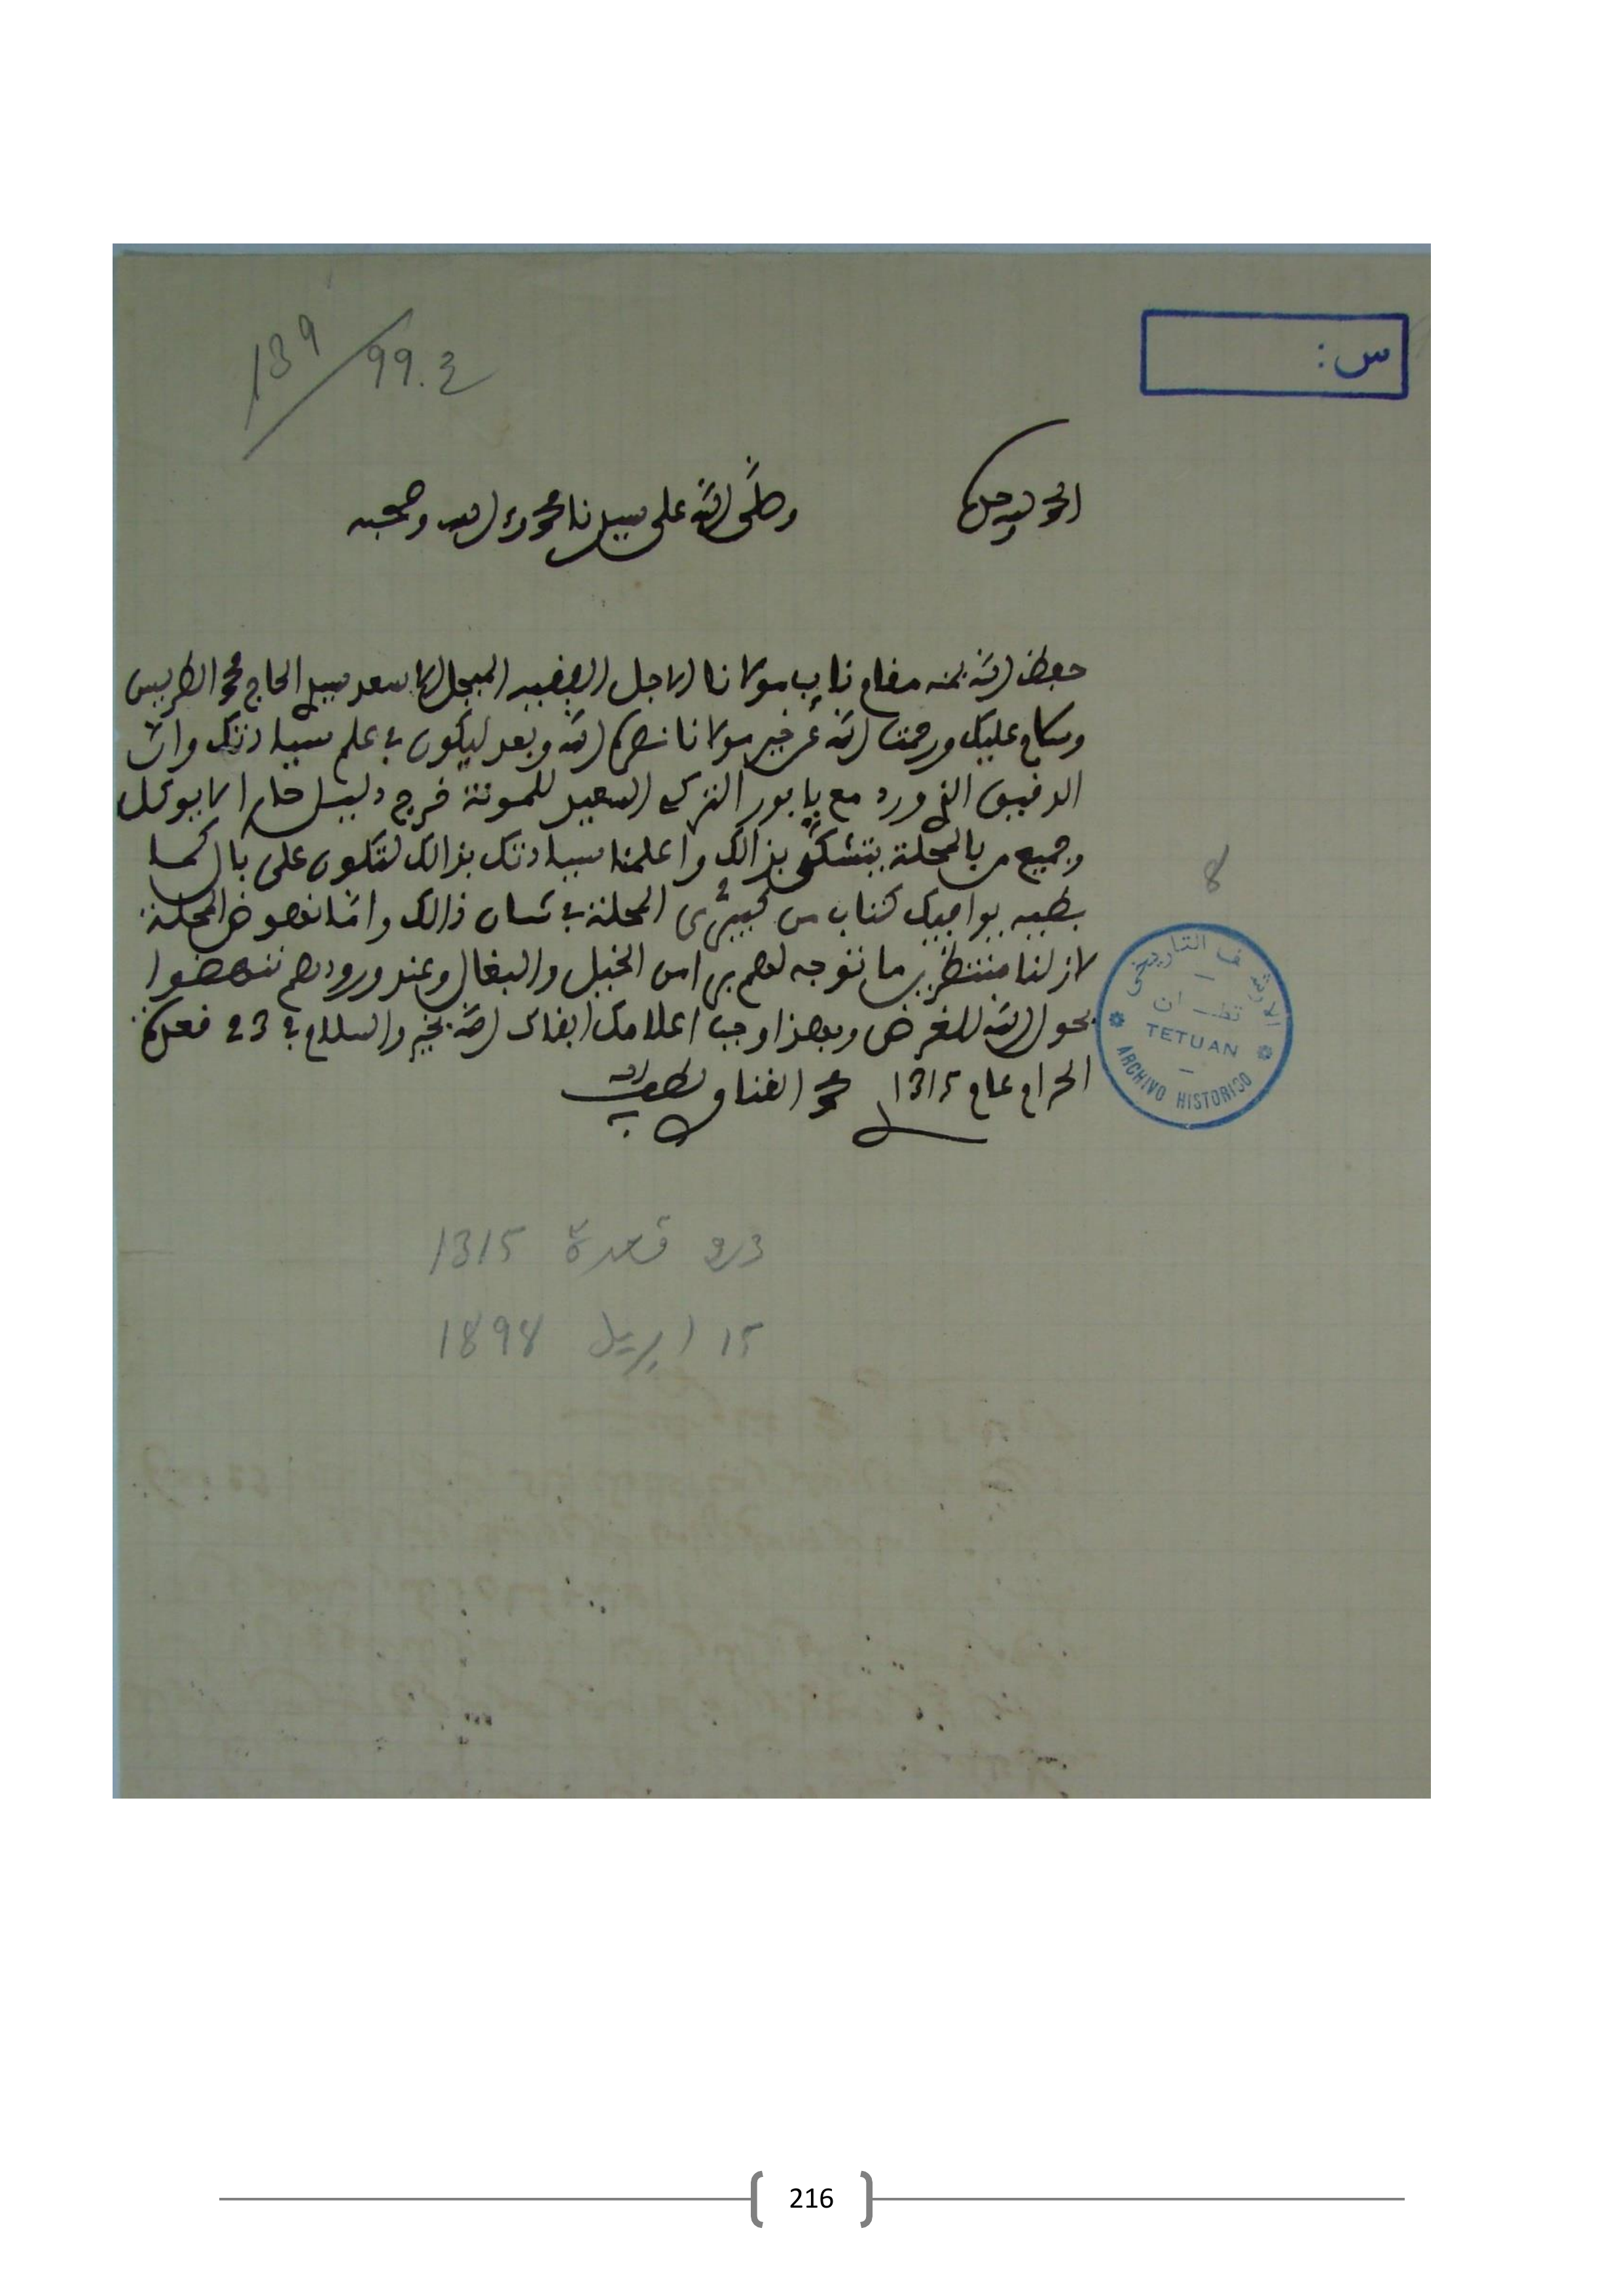 139/99.3
س :
الحمد لله وحده
وصلى الله على سيدنا محمد وءاله وصحبه
حفظ الله بمنه مقام نايب مولانا الاجل الفقيه المبجل الاسعد سيدي الحاج محمد الطريس
وسلام عليك ورحمت الله عن خير مولانا نصره الله وبعد ليكون في علم سيادتك وان
الدقيق الذي ورد مع بابور التركي السعيد للمونة خرج دليس حار لا يوكل
وجميع من بالمحلة بتشكى بذالك واعلمنا سيادتك بذالك لتكون على بال كما
بطيه يوافيك كتاب من كبيري المحلة في شان ذالك واما نهوض المحلة
لازلنا منتظرين ما نتوجه لهم برا من الخيل والبغال وعند ورودهم ننهضوا
بحول الله للغرض وبهذا وجب اعلامك ابقاك الله بخير والسلام في 23 قعدة
الحرام عام 1315 محمد الغناو لطف الله به
8
الارشيف التاريخي
تطــــوان
TETUAN
ARCHIVO HISTORICO
23 قعدة 1315
15 ابريل 1898
216